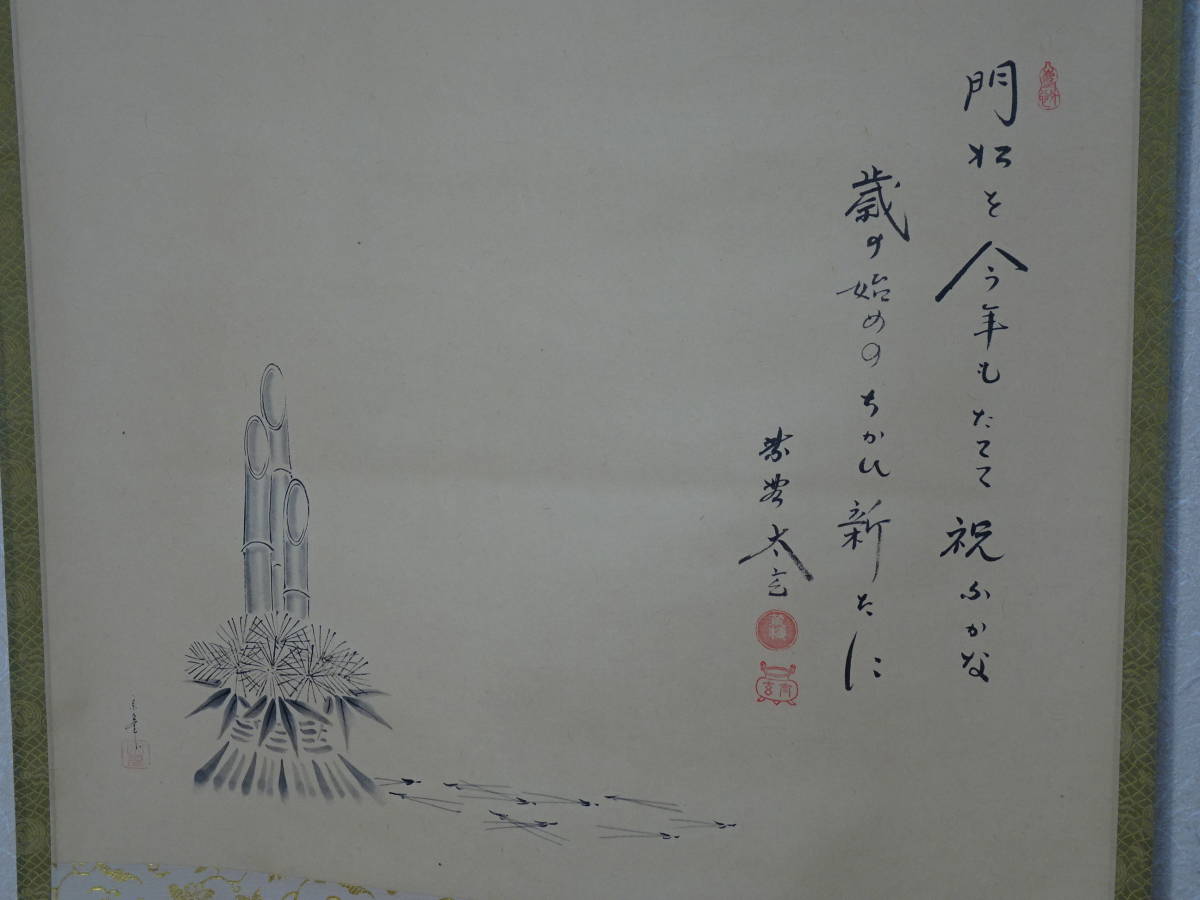 門松を今年もたてて祝ふかな
歳の始めのちかひ新たに
太玄